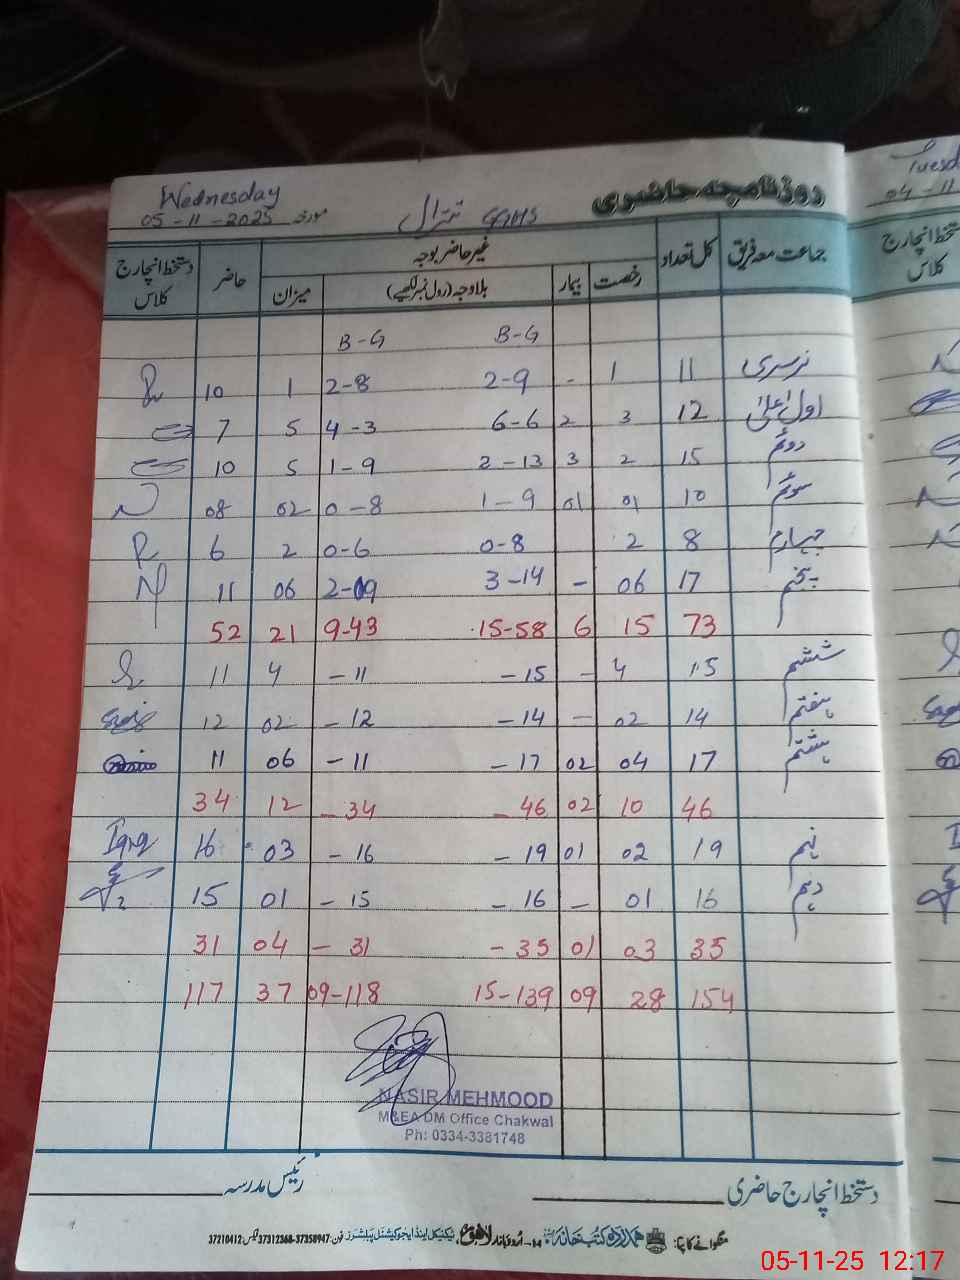 Wednesday
روزنامچہ حاضری GGHS تترال مورخہ 05-11-2025
جماعت معہ فریق کل تعداد غیر حاضر بوجہ حاضر دستخط انچارج کلاس
رخصت بیمار بلاوجہ (رول نمبر لکھیے) میزان
B-G B-G
نرسری 11 1 - 2-9 2-8 1 10
اول اعلیٰ 12 3 2 6-6 4-3 5 7
دوئم 15 2 3 2-13 1-9 5 10
سوئم 10 01 01 1-9 0-8 02 08
چہارم 8 2 0-8 0-6 2 6
پنجم 17 06 - 3-14 2-09 06 11
73 15 6 15-58 9-43 21 52
ششم 15 4 - -15 -11 4 11
ہفتم 14 02 - -14 -12 02 12
ہشتم 17 04 02 -17 -11 06 11
46 10 02 -46 -34 12 34
نہم 19 02 01 -19 -16 03 16 Iqra
دہم 16 01 - -16 -15 01 15
35 03 01 -35 -31 04 31
154 28 09 15-139 09-118 37 117
NASIR MEHMOOD
M&EA DM Office Chakwal
Ph: 0334-3381748
دستخط انچارج حاضری رئیس مدرسہ
منگوانے کا پتہ: ہمدرد کتب خانہ 14-اردو بازار لاہور، ٹیکنیکل اینڈ ایجوکیشنل پبلشرز فون: 37358947-37312368 فیکس: 37210412
Tuesd
04-11
دستخط انچارج
کلاس
05-11-25 12:17